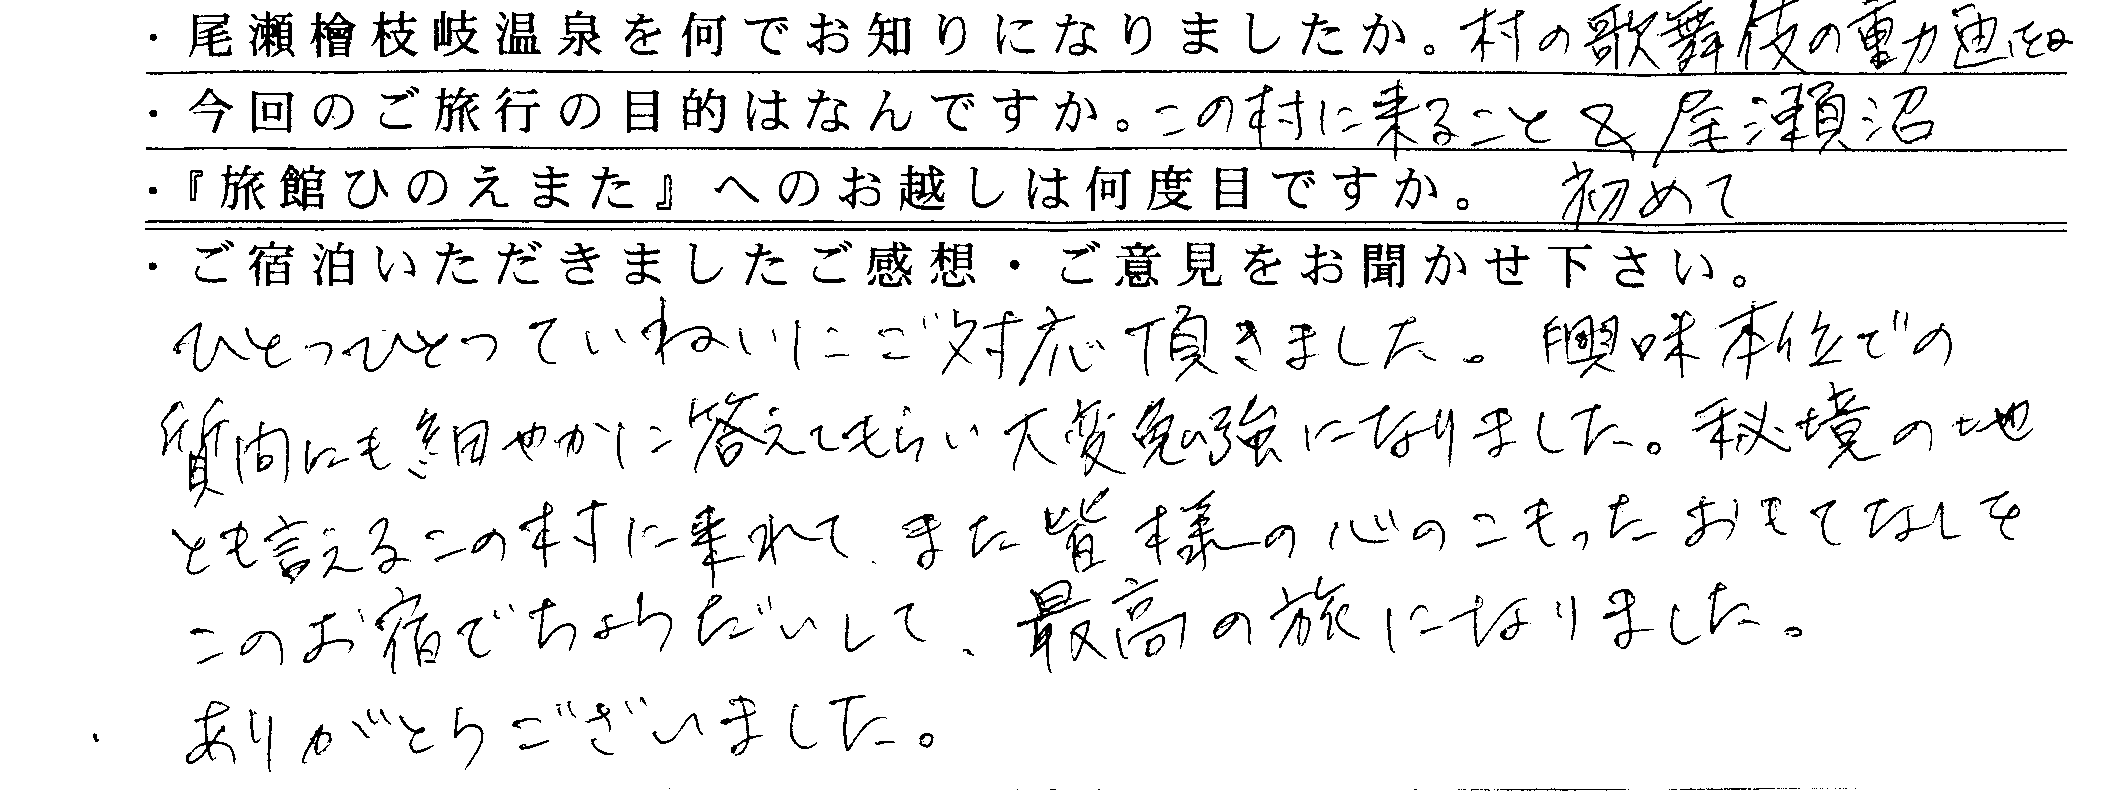 ・尾瀬檜枝岐温泉を何でお知りになりましたか。村の歌舞伎の動画を
・今回のご旅行の目的はなんですか。この村に来ること & 尾瀬沼
・『旅館ひのえまた』へのお越しは何度目ですか。 初めて
・ご宿泊いただきましたご感想・ご意見をお聞かせ下さい。
ひとつひとつていねいにご対応頂きました。興味本位での
質問にも細やかに答えてもらい大変勉強になりました。秘境の地
とも言えるこの村に来れて、また皆様の心のこもったおもてなしを
このお宿でちょうだいして、最高の旅になりました。
ありがとうございました。